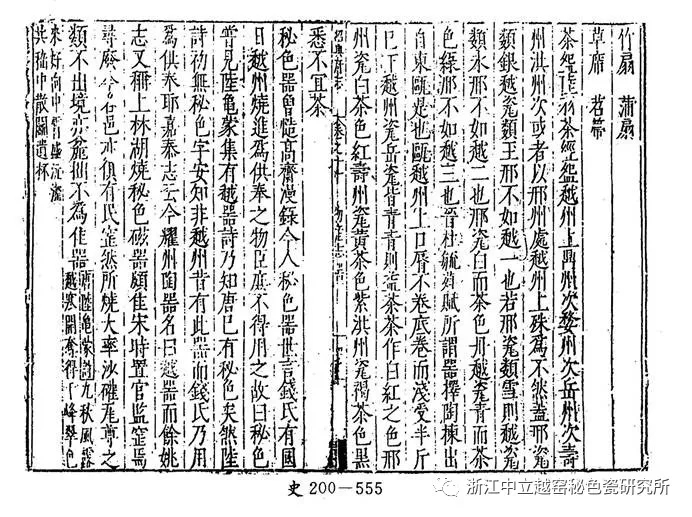 竹扇　蒲扇
草席　苕帚
茶碗陸羽茶經碗越州上鼎州次婺州次岳州次壽
州洪州次或者以邢州處越州上殊為不然蓋邢瓷
類銀越瓷類玉邢不如越一也若邢瓷類雪則越瓷
類氷邢不如越二也邢瓷白而茶色丹越瓷青而茶
色綠邢不如越三也晉杜毓荈賦所謂器擇陶揀出
自東甌是也甌越州上口唇不卷底卷而淺受半斤
已下越州瓷岳瓷皆青青則益茶茶作白紅之色邢
州瓷白茶色紅壽州瓷黃茶色紫洪州瓷褐茶色黑
悉不宜茶
秘色器曾慥高齋漫錄今人秘色器世言錢氏有國
日越州燒進為供奉之物臣庶不得用之故曰秘色
嘗見陸龜蒙集有越器詩乃知唐已有秘色矣然陸
詩初無秘色字安知非越州昔有此器而錢氏乃用
為供奉耶嘉泰志云今耀州陶器名曰越器而餘姚
志又稱上林湖燒秘色磁器頗佳宋時置官監窑焉
尋廢今各邑亦俱有民窑然所燒大率沙確瓦尊之
類不出境亦麄拙不為佳器唐陸龜蒙詩九秋風露
越窑開奪得千峰翠色
來好向中宵盛沆瀣
共嵇中散鬭遺杯
史 200—555
浙江中立越窑秘色瓷研究所